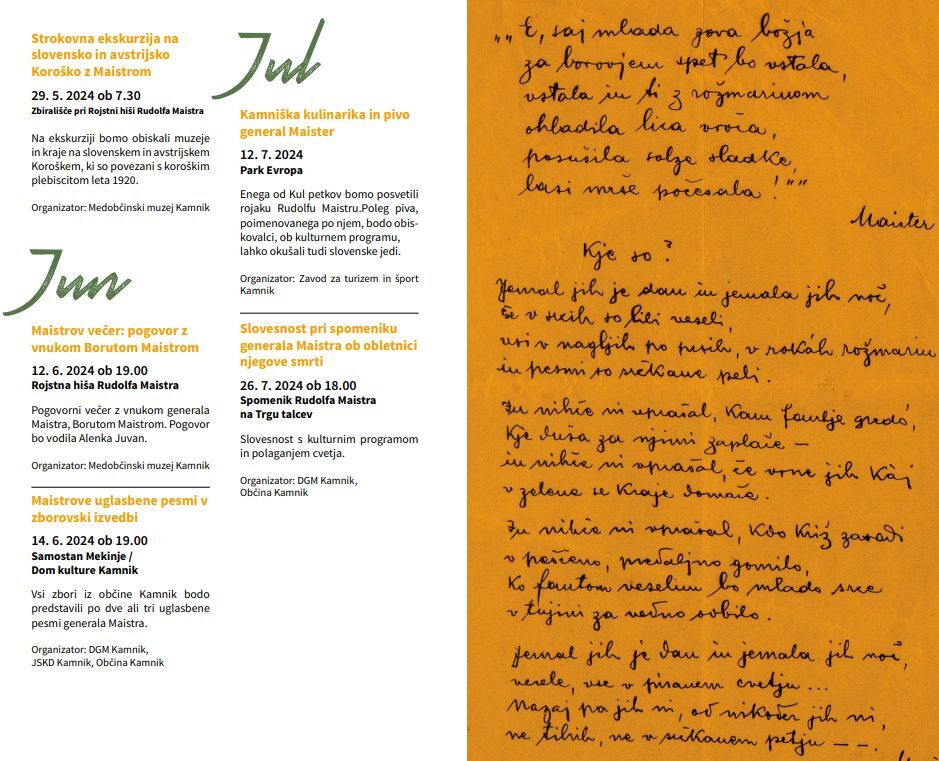 Strokovna ekskurzija na
slovensko in avstrijsko
Koroško z Maistrom
29. 5. 2024 ob 7.30
Zbirališče pri Rojstni hiši Rudolfa Maistra
Na ekskurziji bomo obiskali muzeje
in kraje na slovenskem in avstrijskem
Koroškem, ki so povezani s koroškim
plebiscitom leta 1920.
Organizator: Medobčinski muzej Kamnik
Jun
Maistrov večer: pogovor z
vnukom Borutom Maistrom
12. 6. 2024 ob 19.00
Rojstna hiša Rudolfa Maistra
Pogovorni večer z vnukom generala
Maistra, Borutom Maistrom. Pogovor
bo vodila Alenka Juvan.
Organizator: Medobčinski muzej Kamnik
Maistrove uglasbene pesmi v
zborovski izvedbi
14. 6. 2024 ob 19.00
Samostan Mekinje /
Dom kulture Kamnik
Vsi zbori iz občine Kamnik bodo
predstavili po dve ali tri uglasbene
pesmi generala Maistra.
Organizator: DGM Kamnik,
JSKD Kamnik, Občina Kamnik
Jul
Kamniška kulinarika in pivo
general Maister
12. 7. 2024
Park Evropa
Enega od Kul petkov bomo posvetili
rojaku Rudolfu Maistru.Poleg piva,
poimenovanega po njem, bodo obis-
kovalci, ob kulturnem programu,
lahko okušali tudi slovenske jedi.
Organizator: Zavod za turizem in šport
Kamnik
Slovesnost pri spomeniku
generala Maistra ob obletnici
njegove smrti
26. 7. 2024 ob 18.00
Spomenik Rudolfa Maistra
na Trgu talcev
Slovesnost s kulturnim programom
in polaganjem cvetja.
Organizator: DGM Kamnik,
Občina Kamnik
„„E, saj mlada zova božja
za borovjem spet bo vstala,
vstala in ti z rožmarinom
ohladila lica vroča,
posušila solze sladke,
lasi mrše počesala!""
Maister
Kje so?
Jemal jih je dan in jemala jih noč,
še v srcih so bili veseli,
vsi v nageljih po prsih, v rokah rožmarin
in pesmi so srčkane peli.
In nihče ni vprašal, kam fantje gredó,
Kje duša za njimi zaplače —
in nihče ni vprašal, če vrne jih kaj
v zelene se kraje domače.
In nihče ni vprašal, kdo križ zasadi
v poščeno, predaljno gomilo,
ko fantom veselim bo mlado srce
v tujini za večno odbilo.
Jemal jih je dan in jemala jih noč,
vesele, vse v pisanem cvetju ...
Nazaj pa jih ni, od nikoder jih ni,
ne tihih, ne v srčkanem petju — —.